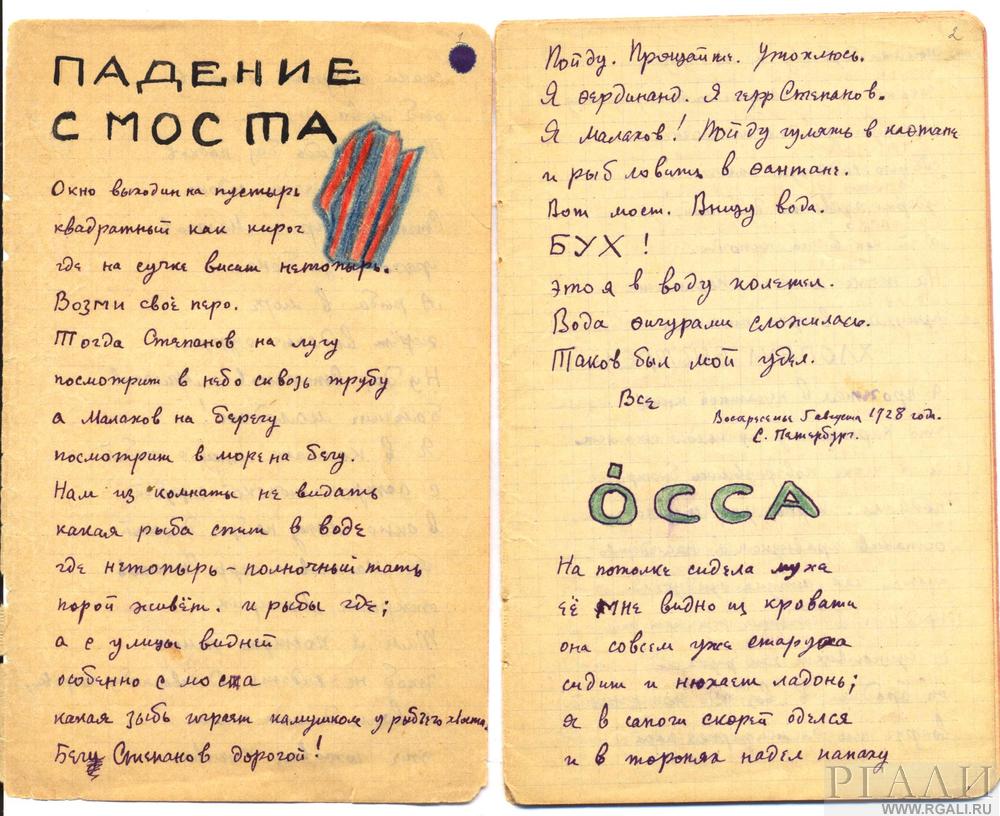 1
ПАДЕНИЕ
С МОСТА
Окно выходит на пустырь
квадратный как пирог
где на сучке висит нетопырь.
Возми своё перо.
Тогда Степанов на лугу
посмотрит в небо сквозь трубу
а Малахов на берегу
посмотрит в море на бегу.
Нам из комнаты не видать
какая рыба спит в воде
где нетопырь - полночный тать
порой живёт. и рыбы где;
а с улицы видней
особенно с моста
какая зыбь играет камушком у рыбьего хвоста.
Бегу Степанов дорогой!
2
Пойду. Прощайте. Утоплюсь.
Я Фердинанд. Я герр Степанов.
Я Малахов! Пойду гулять в кафтане
и рыб ловить в фонтане.
Вот мост. Внизу вода.
БУХ!
это я в воду полетел.
Вода фигурами сложилась.
Таков был мой удел.
Все
Воскресенье 5 августа 1928 года.
С. Петербург.
ОССА
На потолке сидела муха
её мне видно из кровати
она совсем уже старуха
сидит и нюхает ладонь;
я в сапоги скорей оделся
и в торопях надел папаху
РГАЛИ
WWW.RGALI.RU